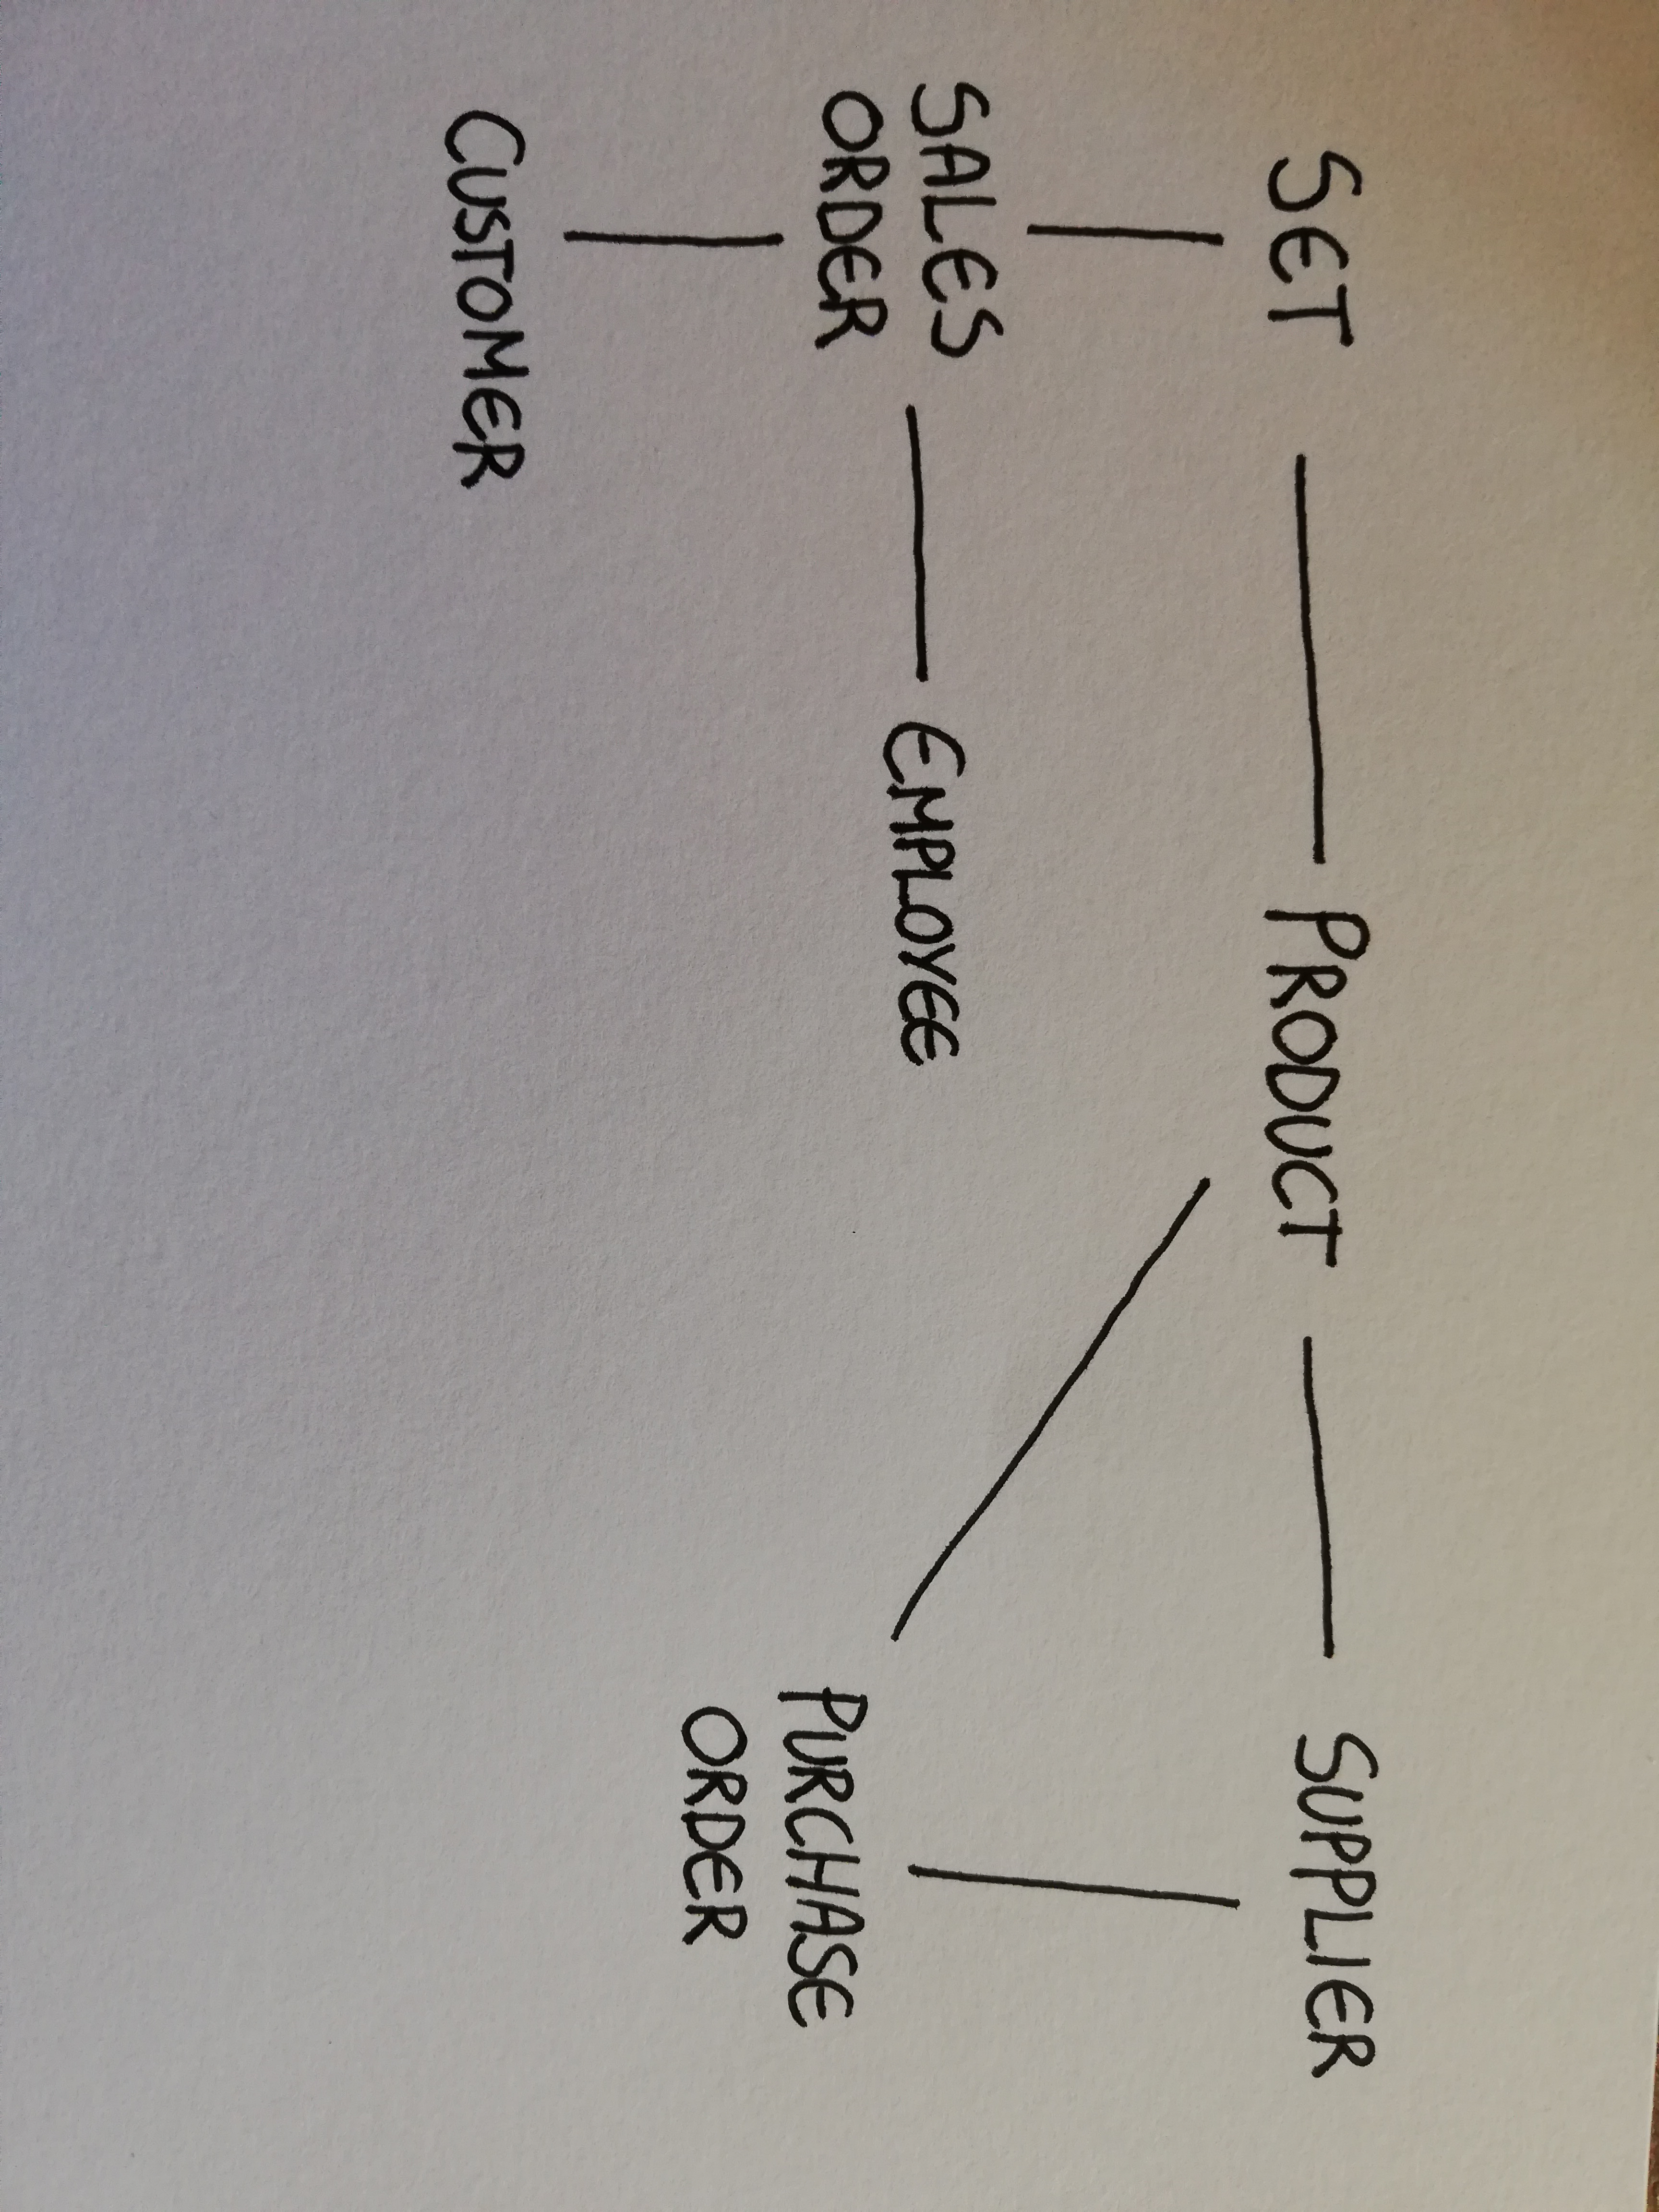 SET
PRODUCT
SUPPLIER
SALES
ORDER
EMPLOYEE
PURCHASE
ORDER
CUSTOMER